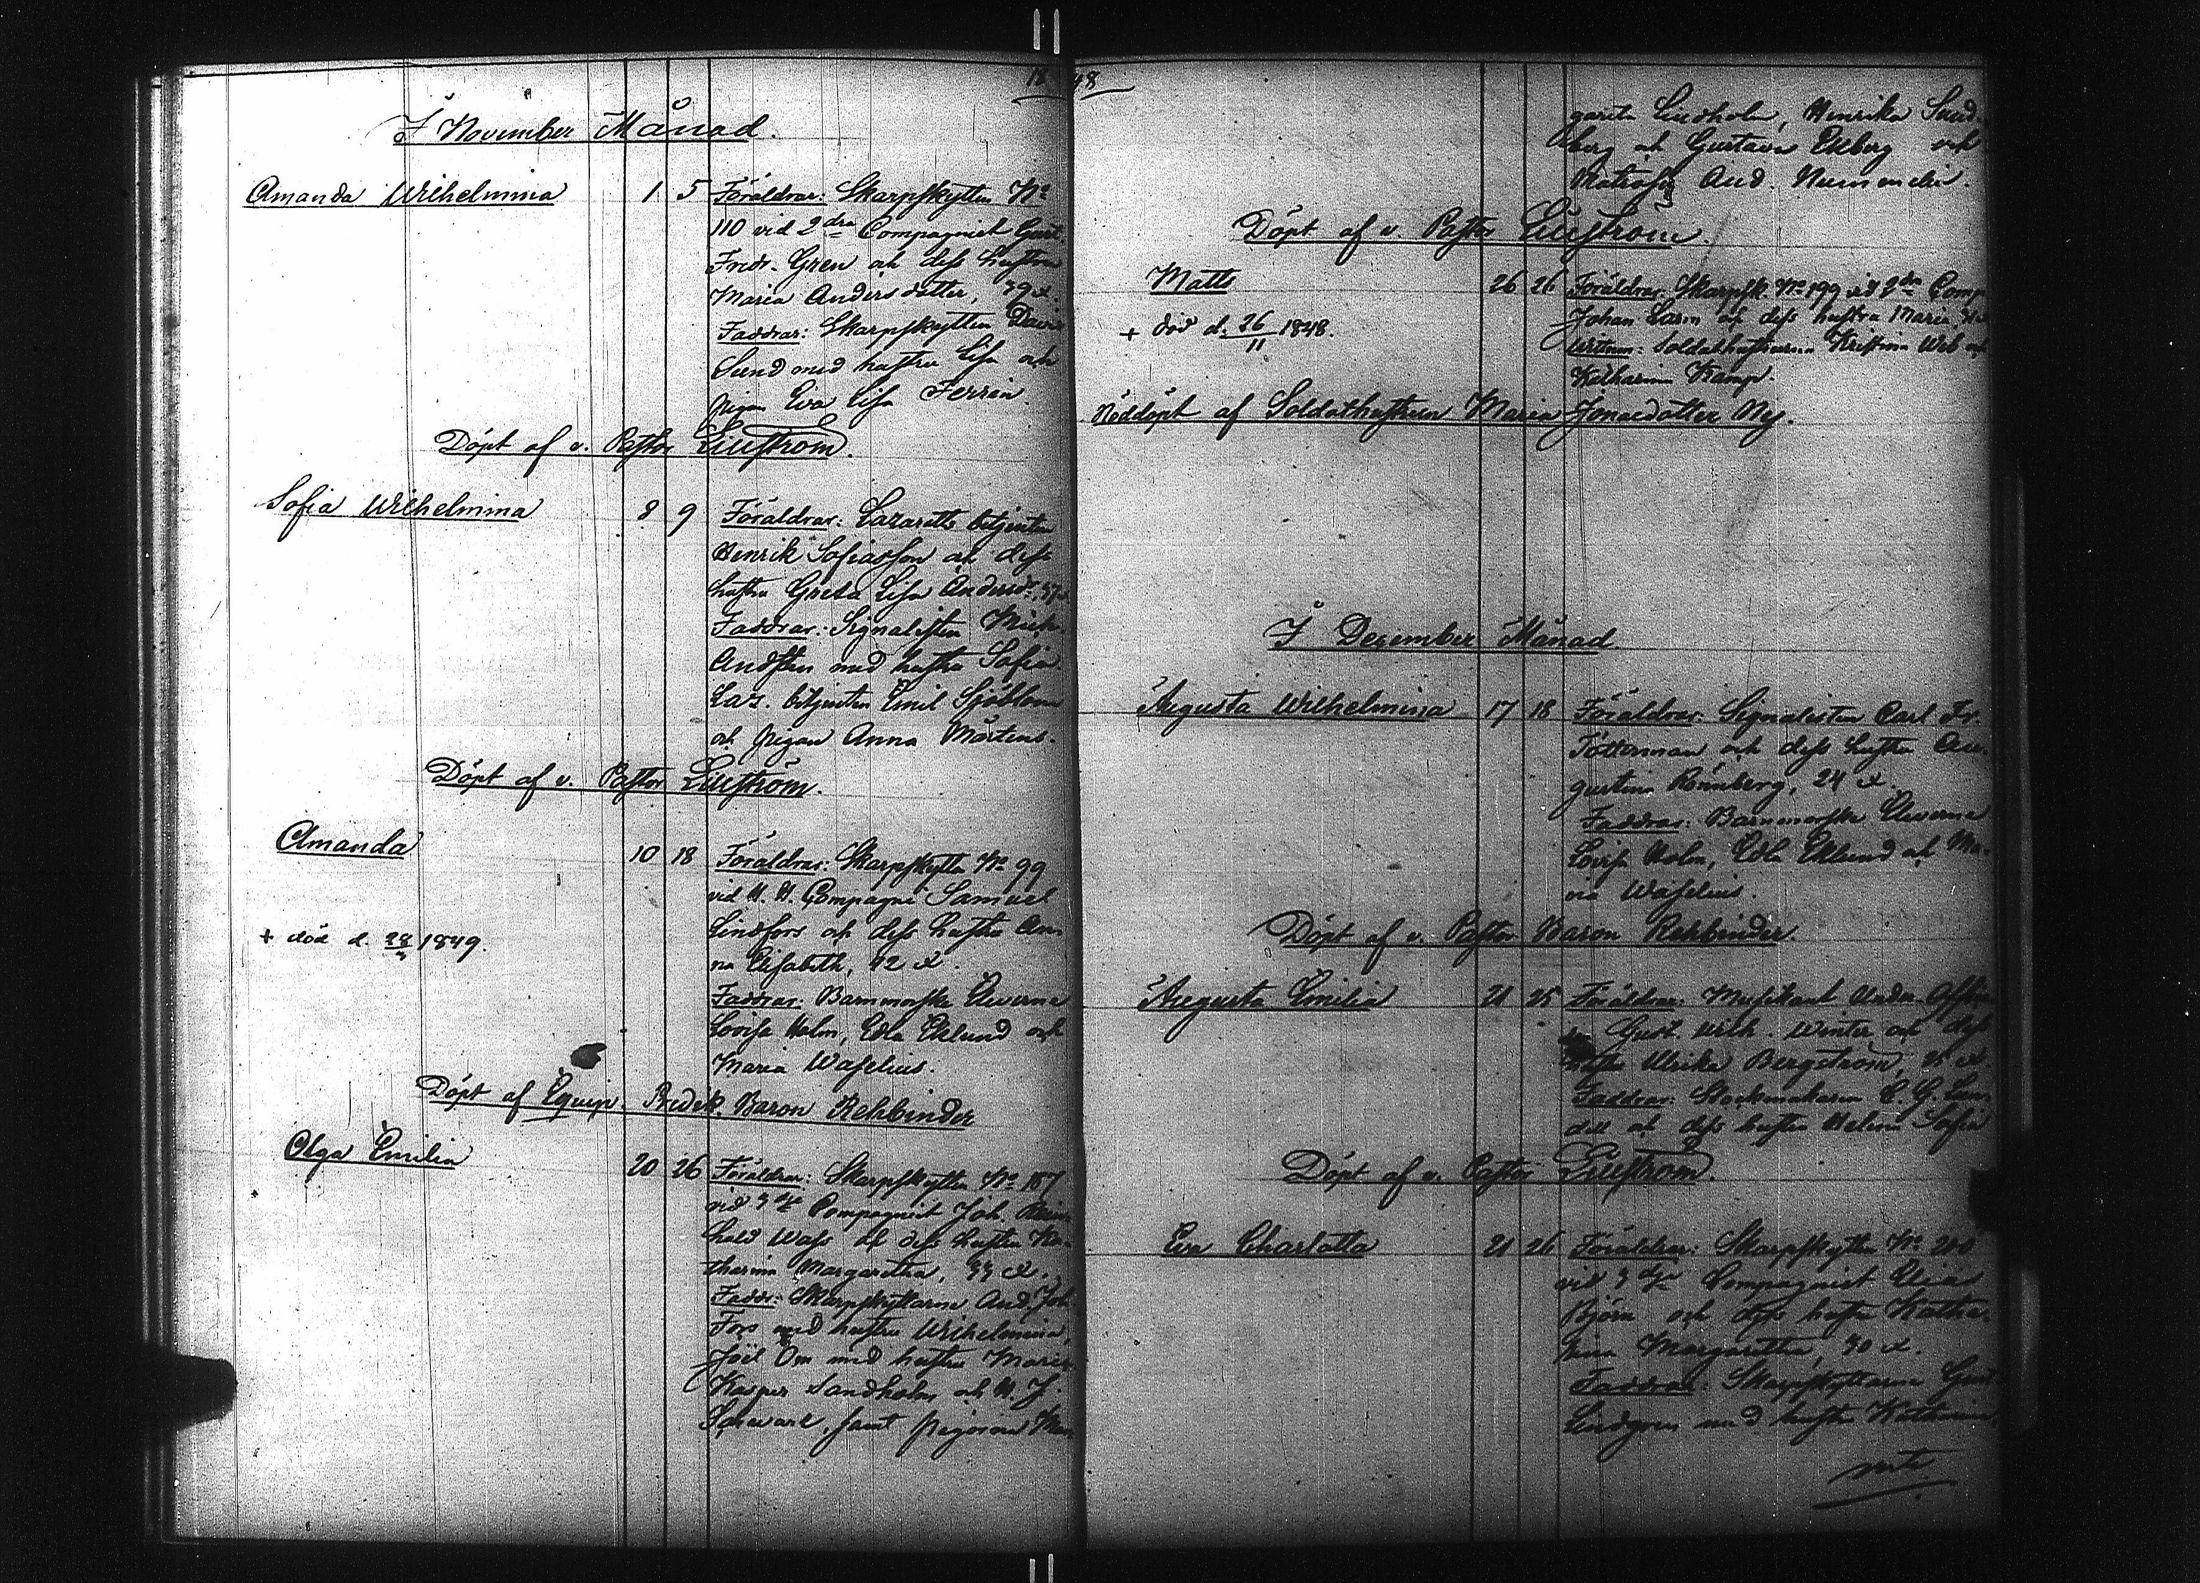 1848
I November Månad.
Amanda Wilhelmina 1 5 Föräldrar: Skarpskytten No
110 vid 2dra Compagniet Gust.
Fredr. Gren och dess hustru
Maria Andersdotter, 39 år.
Faddrar: Skarpskytten David
Sund med hustru Lisa och
pigan Eva Lisa Ferrin.
Döpt af v. Pastor Liljeström.
Sofia Wilhelmina 8 9 Föräldrar: Lazaretts betjenten
Henrik Sofiasson och dess
hustru Greta Lisa Andersdr,
Faddrar: Signalisten Mich.
med hustru Sofia
Laz. betjenten Emil Sjöblom
och pigan Anna Mårtens.
Döpt af v. Pastor Liljeström.
Amanda 10 18 Föräldrar: Skarpskytten No 99
vid Compagni Samuel
+ död d. 1849. Lindfors och dess hustru An-
na Elisabeth, 42 år.
Faddrar: Barnmorske Eleverna
Lovisa Holm, Edla Eklund och
Maria Waselius.
Döpt af Equip. Predik. Baron Rehbinder
Olga Emilia 20 26 Föräldrar: Skarpskytten No 187
vid 3dje Compagniet Joh. Rein-
hold Wass och dess hustru Ka-
tharina Margaretha, 33 år.
Faddr: Skarpskyttarne And. Joh.
Fors med hustru Wilhelmina,
Joël Öm med hustru Maria
Kasper Sandholm och H. J.
samt pigorna Mar
gareta Lindholm, Henrika Sund-
berg och Gustava Ekberg och
Matrosen And. Nummelin.
Döpt af v. Pastor Liljeström.
Matts 26 26 Föräldrar: Skarpsk. No 199 vid 2dra Comp
+ död d. 26/11 1848. Johan Larm och dess hustru Maria,
Wittnen: Soldathustrurna Kristina Web och
Katharina Kamp.
Nöddöpt af Soldathustrun Maria Jonaedotter Ny.
I December Månad.
Augusta Wilhelmina 17 18 Föräldrar: Signalisten Carl Fr.
Fötterman och dess hustru Au-
gustina Rönnberg, 24 år.
Faddrar: Barnmorske Eleverna
Lovisa Holm, Edla Eklund och Ma-
ria Waselius.
Döpt af v. Pastor Baron Rehbinder.
Augusta Emilia 21 25 Föräldrar: Musikant Under Offi
Gust. Wilh. Winter och dess
hustru Ulrika Bergström, år
Faddrar: Klockmakaren C. G. Lin
dell och dess hustru Helena Sofia
Döpt af v. Pastor Liljeström.
Eva Charlotta 21 26 Föräldrar: Skarpskytten No 200
vid 3dje Compagniet Elias
Björn och dess hustru Katha-
rina Margaretha, 30 år.
Faddrar: Skarpskyttarne Gust
Lindgren med hustru Katharina,
verte